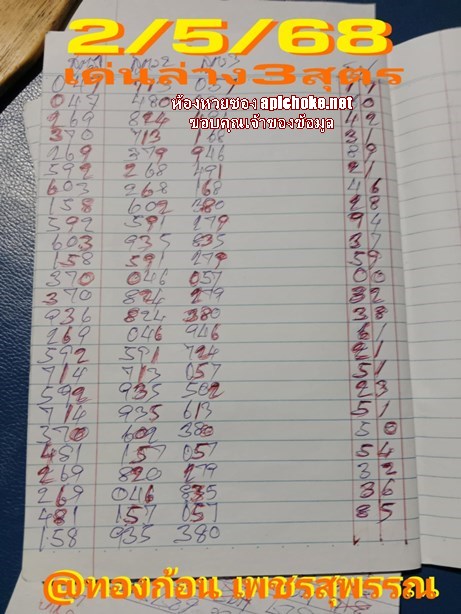 2/5/68
เด่นล่าง3สูตร
ห้องหวยซอง apichoke.net
ขอบคุณเจ้าของข้อมูล
047 480
269 824 49
370 713 168 31
269 379 946 89
592 268 491 21
603 268 168 46
158 602 380 28
592 591 279 94
603 935 835 37
158 591 279 59
370 046 057 00
370 824 279 32
936 824 380 38
269 046 946 61
592 591 724 21
714 713 057 51
592 935 502 23
714 935 613 51
370 602 380 50
481 157 057 54
269 820 279 32
269 046 835 36
481 157 057 85
158 935 380
@ทองก้อน เพชรสุพรรณ